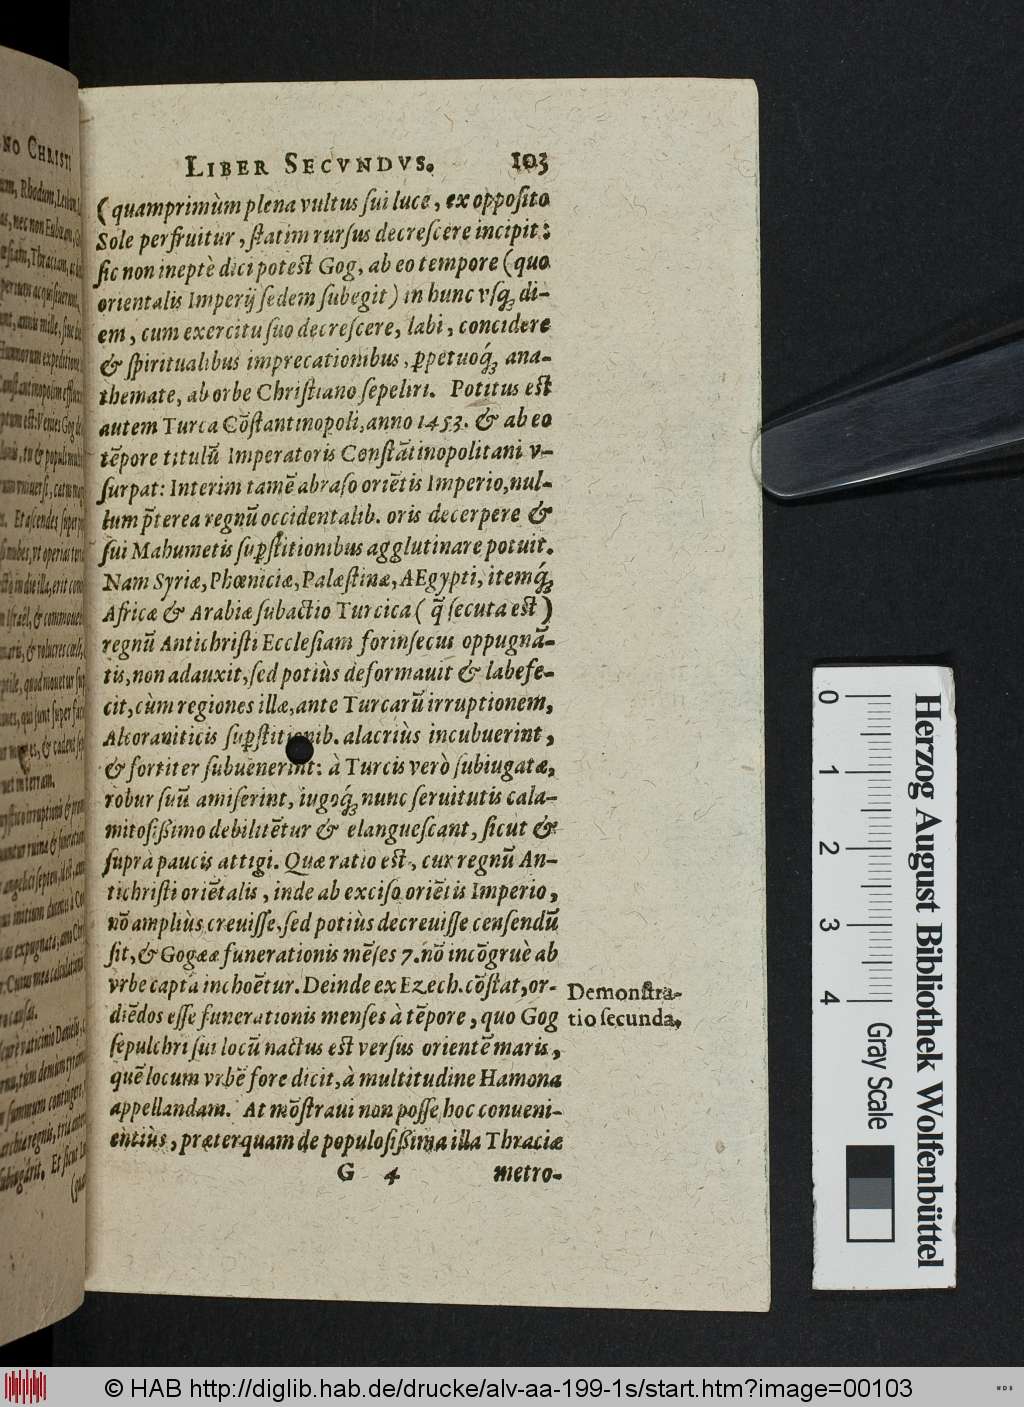 NO CHRISTI
LIBER SECVNDVS. 103
(quamprimùm plena vultus sui luce, ex opposito
Sole perfruitur, statim rursus decrescere incipit:
sic non ineptè dici potest Gog, ab eo tempore (quo
orientalis Imperij sedem subegit) in hunc vsq́; di-
em, cum exercitu suo decrescere, labi, concidere
& spiritualibus imprecationibus, ꝑpetuoq́; ana-
themate, ab orbe Christiano sepeliri. Potitus est
autem Turca Cōstantinopoli, anno 1453. & ab eo
tēpore titulū Imperatoris Constātinopolitani v-
surpat: Interim tamē abraso oriētis Imperio, nul-
lum p̄terea regnū occidentalib. oris decerpere &
sui Mahumetis suꝑstitionibus agglutinare potuit.
Nam Syriæ, Phœniciæ, Palæstinæ, AEgypti, itemq́;
Africæ & Arabiæ subactio Turcica ( q̄ secuta est )
regnū Antichristi Ecclesiam forinsecus oppugnā-
tis, non adauxit, sed potiùs deformauit & labefe-
cit, cùm regiones illæ, ante Turcarū irruptionem,
Alcoraniticis suꝑstitionib. alacriùs incubuerint,
& fortiter subuenerint: à Turcis verò subiugatæ,
robur suū amiserint, iugoq́; nunc seruitutis cala-
mitosißimo debilitētur & elanguescant, sicut &
suprà paucis attigi. Quæ ratio est, cur regnū An-
tichristi oriētalis, inde ab exciso oriētis Imperio,
nō ampliùs creuisse, sed potiùs decreuisse censendū
sit, & Gogææ funerationis mēses 7. nō incōgruè ab
vrbe capta inchoētur. Deinde ex Ezech. cōstat, or-
diēdos esse funerationis menses à tēpore, quo Gog
sepulchri sui locū nactus est versus orientē maris,
quē locum vrbē fore dicit, à multitudine Hamona
appellandam. At mōstraui non posse, hoc conueni-
entiùs, præterquam de populosißima illa Thraciæ
G 4 metro-
Demonstra-
tio secunda.
Herzog August Bibliothek Wolfenbüttel
0 1 2 3 4 Gray Scale
© HAB http://diglib.hab.de/drucke/alv-aa-199-1s/start.htm?image=00103